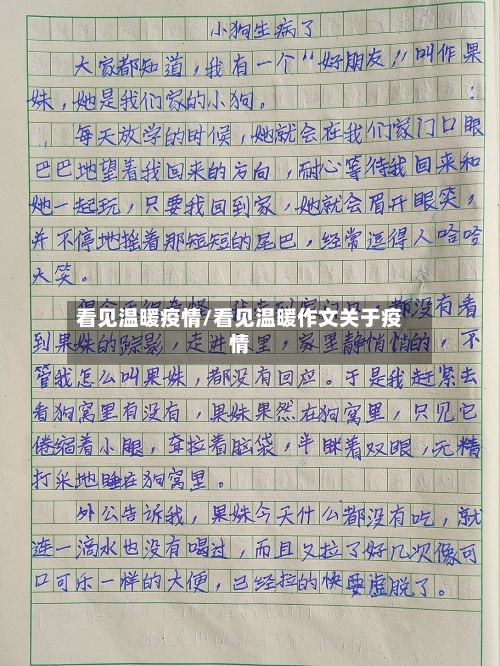 小狗生病了
大家都知道，我有一个“好朋友”叫作果
妹，她是我们家的小狗。
每天放学的时候，她就会在我们家门口眼
巴巴地望着我回来的方向，耐心等待我回来和
她一起玩，只要我回到家，她就会眉开眼笑，
并不停地摇着那短短的尾巴，经常逗得人哈哈
大笑。
都没有看
看见温暖疫情/看见温暖作文关于疫
情
到果妹的踪影，走进 里，家里静悄悄的，不
管我怎么叫果妹，都没有回应。于是我赶紧去
看狗窝里有没有，果妹果然在狗窝里，只见它
倦缩着小腿，耷拉着脑袋，半眯着双眼，无精
打采地睡在狗窝里。
外公告诉我，果妹今天什么都没有吃，就
连一滴水也没有喝过，而且又拉了好几次像可
口可乐一样的大便，已经拉的快要虚脱了。